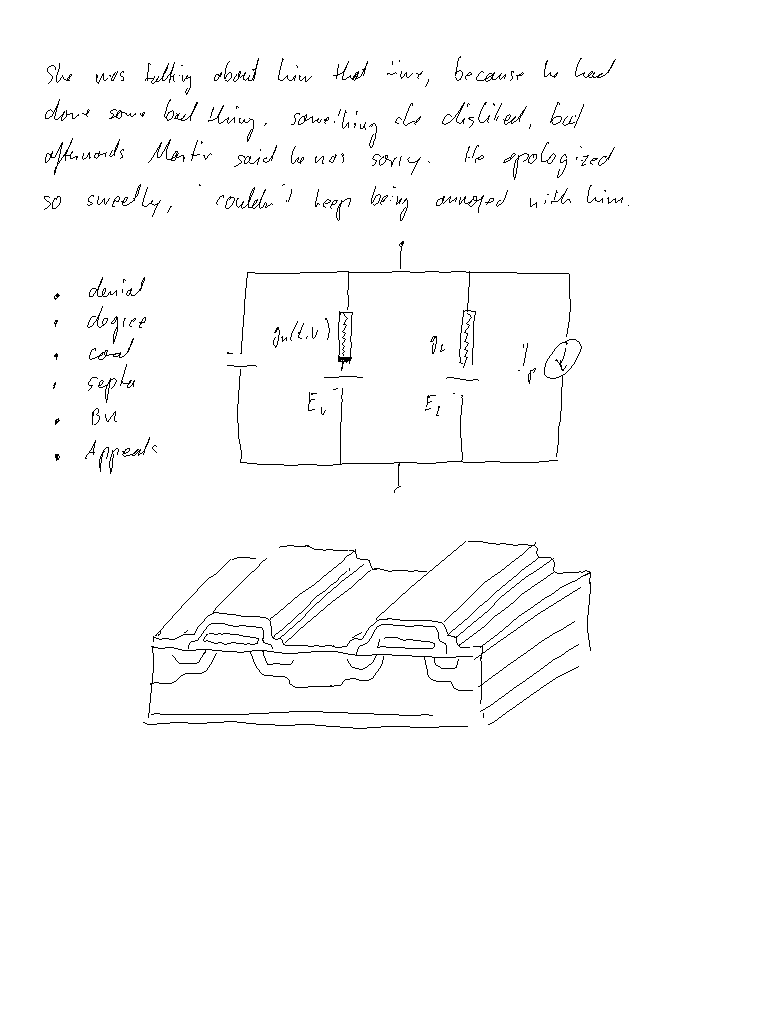 She was talking about him that time, because he had
done some bad thing, something she disliked, but
afterwards Martin said he was sorry. He apologized
so sweetly, I couldn't keep being annoyed with him.
denial
degree
coal
septa
BU
Appeals
gₙ(t,V)
g_L
I_p
E_L